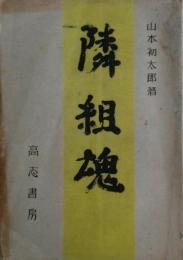 山本初太郎著
隣組魂
高志書房